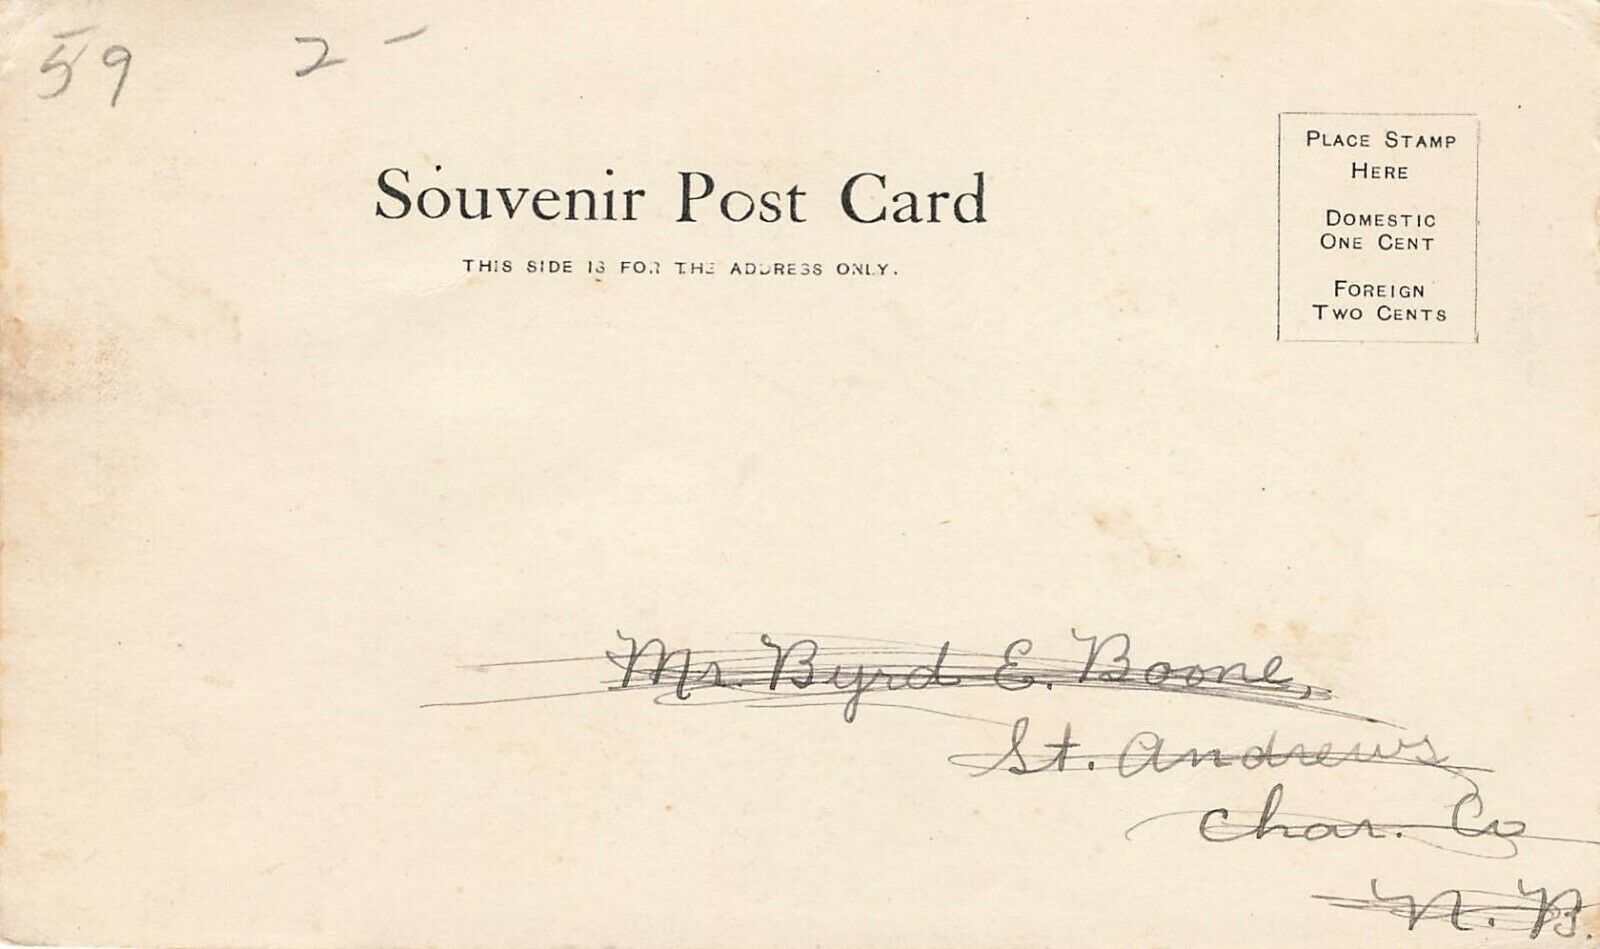 59 2 -
Souvenir Post Card
THIS SIDE IS FOR THE ADDRESS ONLY.
PLACE STAMP
HERE
DOMESTIC
ONE CENT
FOREIGN
TWO CENTS
Mr. Byrd E. Boone,
St. Andrews
Char. Co
N.B.